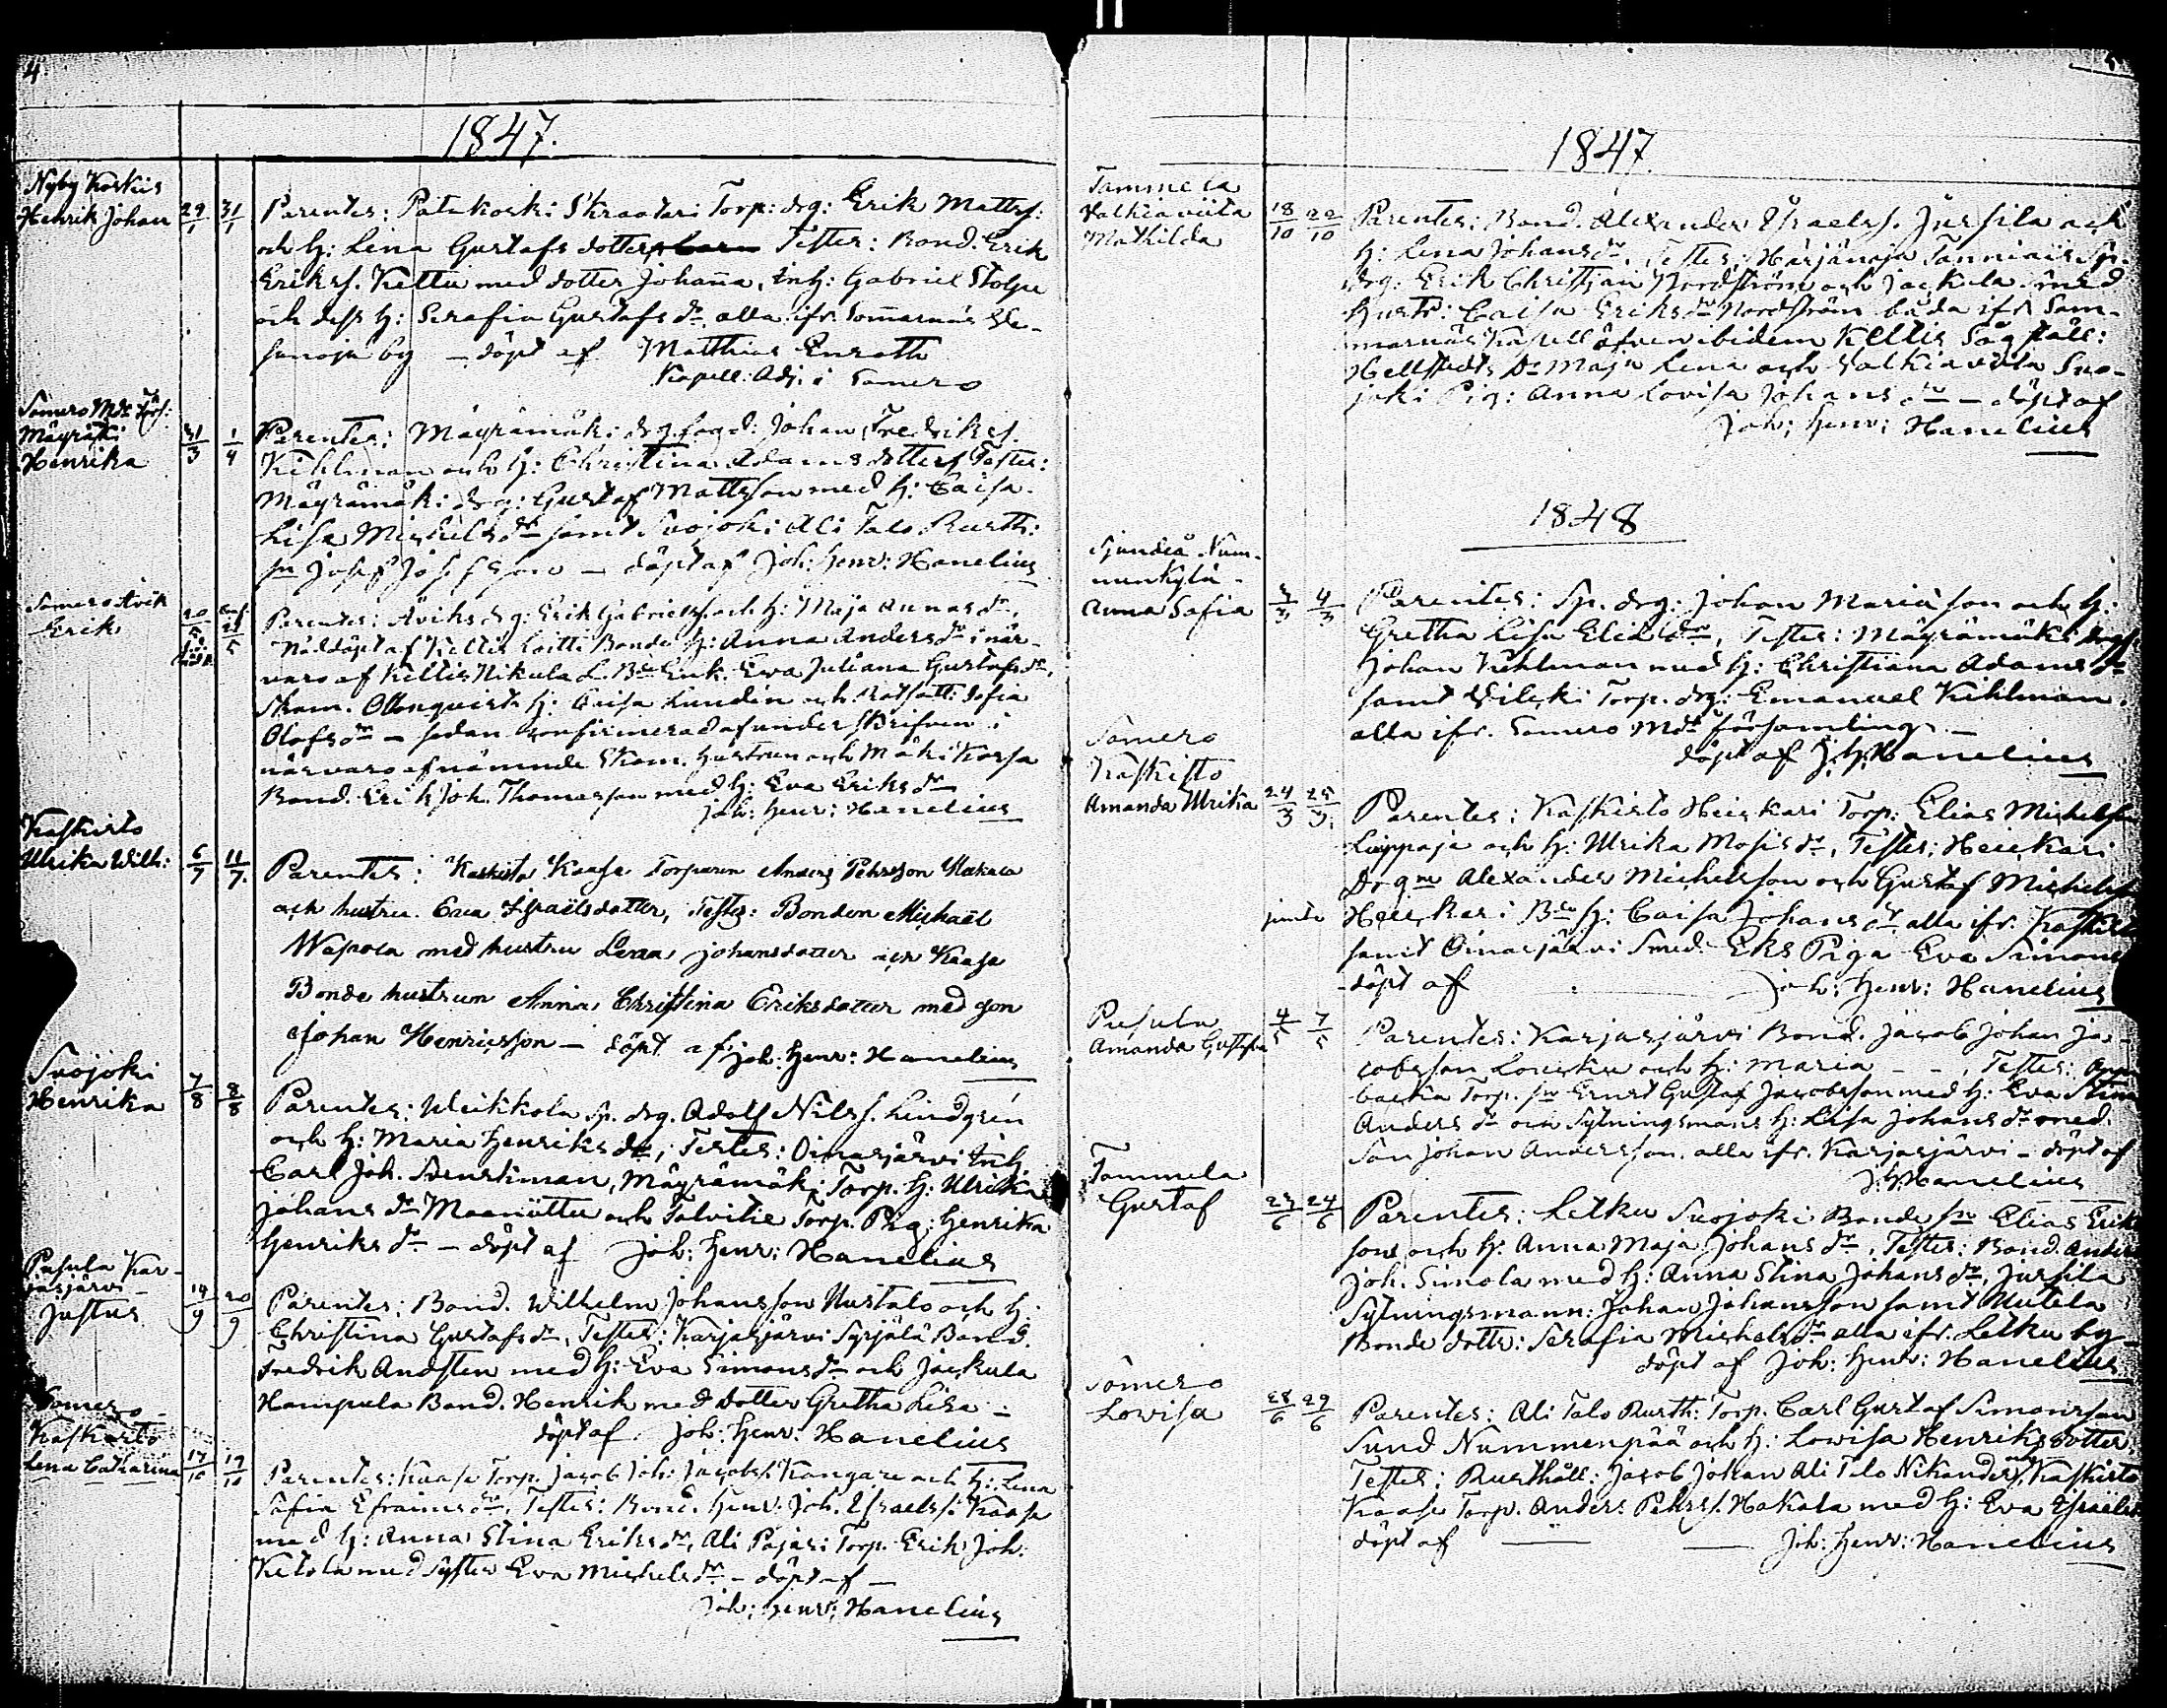 4.
1847.
Nyby Koskis
Henrik Johan 29/1 31/1
Parentes: Patakoski Skraatari Torp: drg: Erik Mattss:
och H: Lena Gustafs dotter, Testes: Bond. Erik
Erikss. Kettu med dotter Johanna, Inh: Gabriel Stolpe
och dess H: Serafia Gustafs dr alla ifr. Sommarnäs
by – döpt af Matthias Enroth
Kapell: Adj. i Somero
Somero Mdr förs:
Mäyrämäki
Henrika 31/3 1/4
Parentes: Mäyrämäki drg. fogd: Johan Fredrikss.
Kihlman och H: Christina Adams dotter, Testes:
Mäyrämäki drg: Gustaf Mattsson med H: Caisa
Lisa Michels dr samt Suojoki Ali Talo Rusth:
sn Josef Josefsson – döpt af Joh: Henr: Hanelius
Somero Åvik
Erik 20/5
Parentes: Åviks drg: Erik Gabrielss. och H: Maja Annas dr,
Nöddöpt af Kellis Loitti Bonde H: Anna Anders dr i när-
varo af Kellis Nikula Enk. Eva Juliana Gustafs dr,
Skom. Ollonqvists H: Caisa Lundén och Sofia
Olofs dr – sedan konfirmerad af underskrifven i
närvaro af nämnde Skom. hustrun och Mäki Korsa
Bond. Erik Joh. Thomasson med H: Eva Eriks dr
Joh: Henr: Hanelius
Kaskisto
Ulrika Wilh: 6/7 11/7
Parentes: Kaskisto Kaase Torparen Anders Pehrsson Hakala
och hustru Eva Israëlsdotter, Testes: Bonden Michaël
Wapola med hustru Lena Johansdotter och Kaase
Bonde hustrun Anna Christina Eriksdotter med son
Johan Henricsson – döpt af Joh: Henr: Hanelius
Suojoki
Henrika 7/8 8/8
Parentes: Weikkola sp. drg. Adolf Nilss. Lindgrén
och H: Maria Henriks dr, Testes: Oinasjärvi Inh.
Carl Joh. Stenskman, Mäyrämäki Torp. H: Ulrika
Johans dr Maaniittu och Talvitie Torp. Pig: Henrika
Henriks dr – döpt af Joh: Henr: Hanelius
Pusula Kar-
jasjärvi –
Justus 19/9 20/9
Parentes: Bond. Wilhelm Johansson Uustalo och H:
Christina Gustafs dr, Testes: Karjasjärvi Syrjälä Bond.
Fredrik Andsten med H: Eva Simons dr och Jackula
Hampula Bond. Henrik med dotter Gretha Lisa –
döpt af Joh: Henr: Hanelius
Somero
Kaskisto
Lena Catharina 17/10 19/10
Parentes: Kaase Torp. Jacob Joh: Jacobs: Kangare och H: Lena
Sofia Efraims dr, Testes: Bond. Henr: Joh. Israelss: Kaase
med H: Anna Stina Eriks dr, Ali Pajari Torp. Erik Joh:
Ketola med Syster Eva Michels dr – döpt af –
Joh: Henr: Hanelius
1847.
Tammela
Valkiaviita
Mathilda 18/10 22/10
Parentes: Bond. Alexander Israelss. Jursila och
H: Lena Johans dr, Testes: Härjänoja Sp.
drg: Erik Christian Nordström och Jackula med
hustr: Caisa Eriks dr Nordström båda ifr Som-
marnäs Kapell äfven ibidem Kellis
Hellstedts dr Maja Lena och Valkiaviita Suo-
joki Pig: Anna Lovisa Johans dr – döpt af
Joh: Henr: Hanelius
1848
Sjundeå Num-
menkylä –
Anna Sofia 3/3 4/3
Parentes: Sp. drg: Johan Mariäson och H:
Gretha Lisa Elias dr, Testes: Mäyrämäki drg:
Johan Kihlman med H: Christiana Adams dr
samt Torp. drg: Emanuel Kihlman.
alla ifr. Somero Mdr församling –
döpt af J: H: Hanelius
Somero
Kaskisto
Amanda Ulrika 24/3 25/3
Parentes: Kaskisto Heickari Torp: Elias Michelsson
Leppoja och H: Ulrika Mosis dr, Testes: Heickari
Drgne Alexander Michelsson och Gustaf Michelss
jemte Heickari Bde H: Caisa Johans dr alla ifr. Kaskisto
samt Oinasjärvi Smed Eks Piga Eva Simons
döpt af Joh: Henr: Hanelius
Pusula
Amanda Gustafva 4/5 7/5
Parentes: Karjasjärvi Bond. Jacob Johan Ja-
cobsson Loucku och H: Maria – –, Testes:
backa Torp. sn Ernst Gustaf Jacobsson med H: Eva Stina
Anders dr och Sytningsmans H: Lisa Johans dr med
Son Johan Andersson. alla ifr. Karjasjärvi – döpt af
J: H: Hanelius
Tammela
Gustaf 23/6 24/6
Parentes: Letku Suojoki Bonde sn Elias Erik
son och H: Anna Maja Johans dr, Testes: Bond. Anders
Joh. Simola med H: Anna Stina Johans dr, Jursila
Sytningsmann: Johan Johansson samt Uutela
Bonde dottr: Serafia Michels dr alla ifr. Letku by –
döpt af Joh: Henr: Hanelius
Somero
Lovisa 28/6 29/6
Parentes: Ali Talo Rusth: Torp. Carl Gustaf Simonsson
Sund Nummenpää och H: Lovisa Henriks dotter
Testes: Rusthåll: Jacob Johan Ali Talo Nikander, och Kaskisto
Kaase Torp. Anders Pehrss. Hakala med H: Eva Israels
döpt af — — Joh: Henr: Hanelius